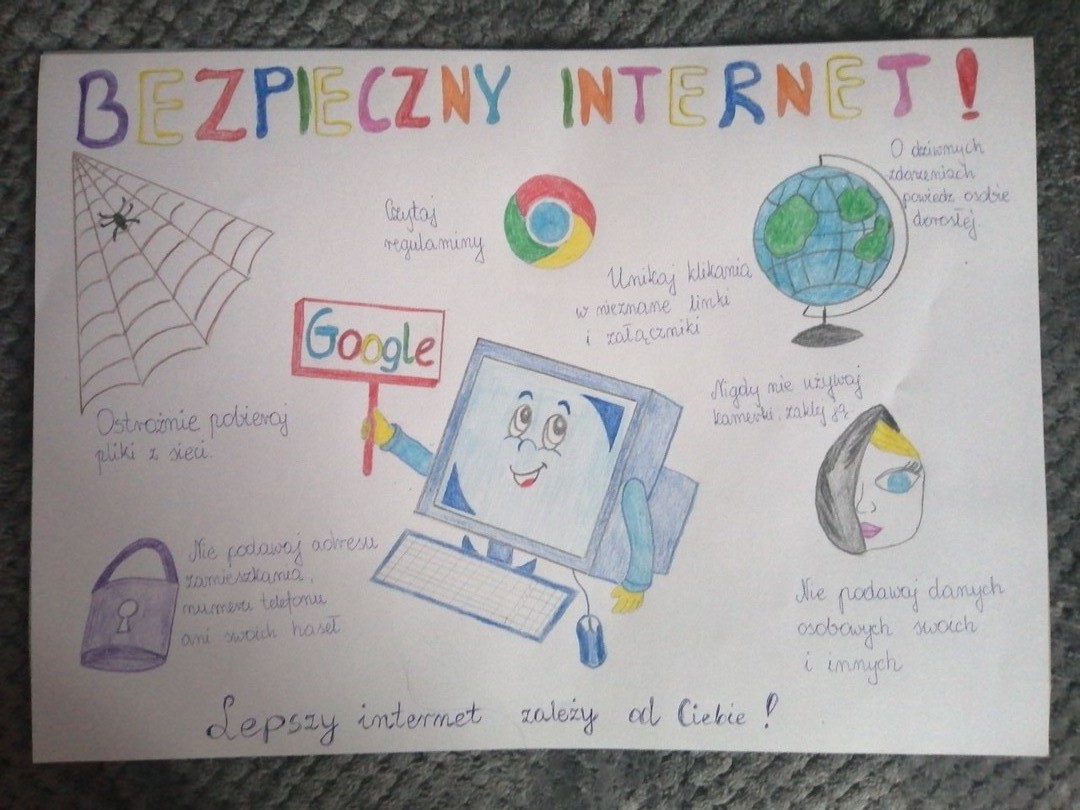 BEZPIECZNY INTERNET!
O dziwnych
zdarzeniach
powiedz osobie
dorosłej.
Czytaj
regulaminy
Unikaj klikania
w nieznane linki
i załączniki
Google
Nigdy nie używaj
kamerki, zaklej ją.
Ostrożnie pobieraj
pliki z sieci.
Nie podawaj adresu
zamieszkania,
numeru telefonu
ani swoich haseł
Nie podawaj danych
osobowych swoich
i innych
Lepszy internet zależy od Ciebie!